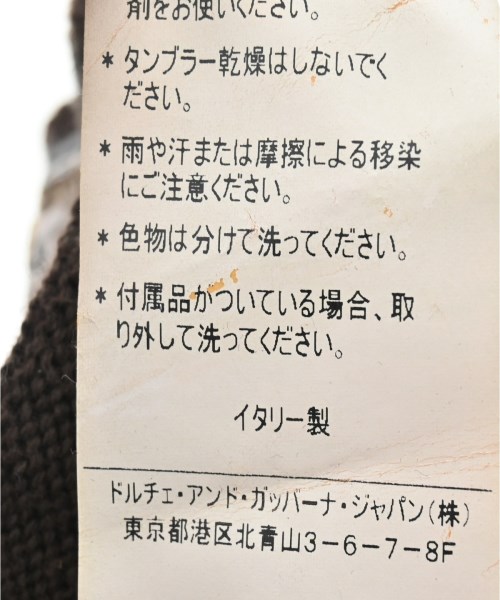 剤をお使いください。
* タンブラー乾燥はしないでく
ださい。
* 雨や汗または摩擦による移染
にご注意ください。
* 色物は分けて洗ってください。
* 付属品がついている場合、取
り外して洗ってください。
イタリー製
ドルチェ・アンド・ガッバーナ・ジャパン(株)
東京都港区北青山3-6-7-8F